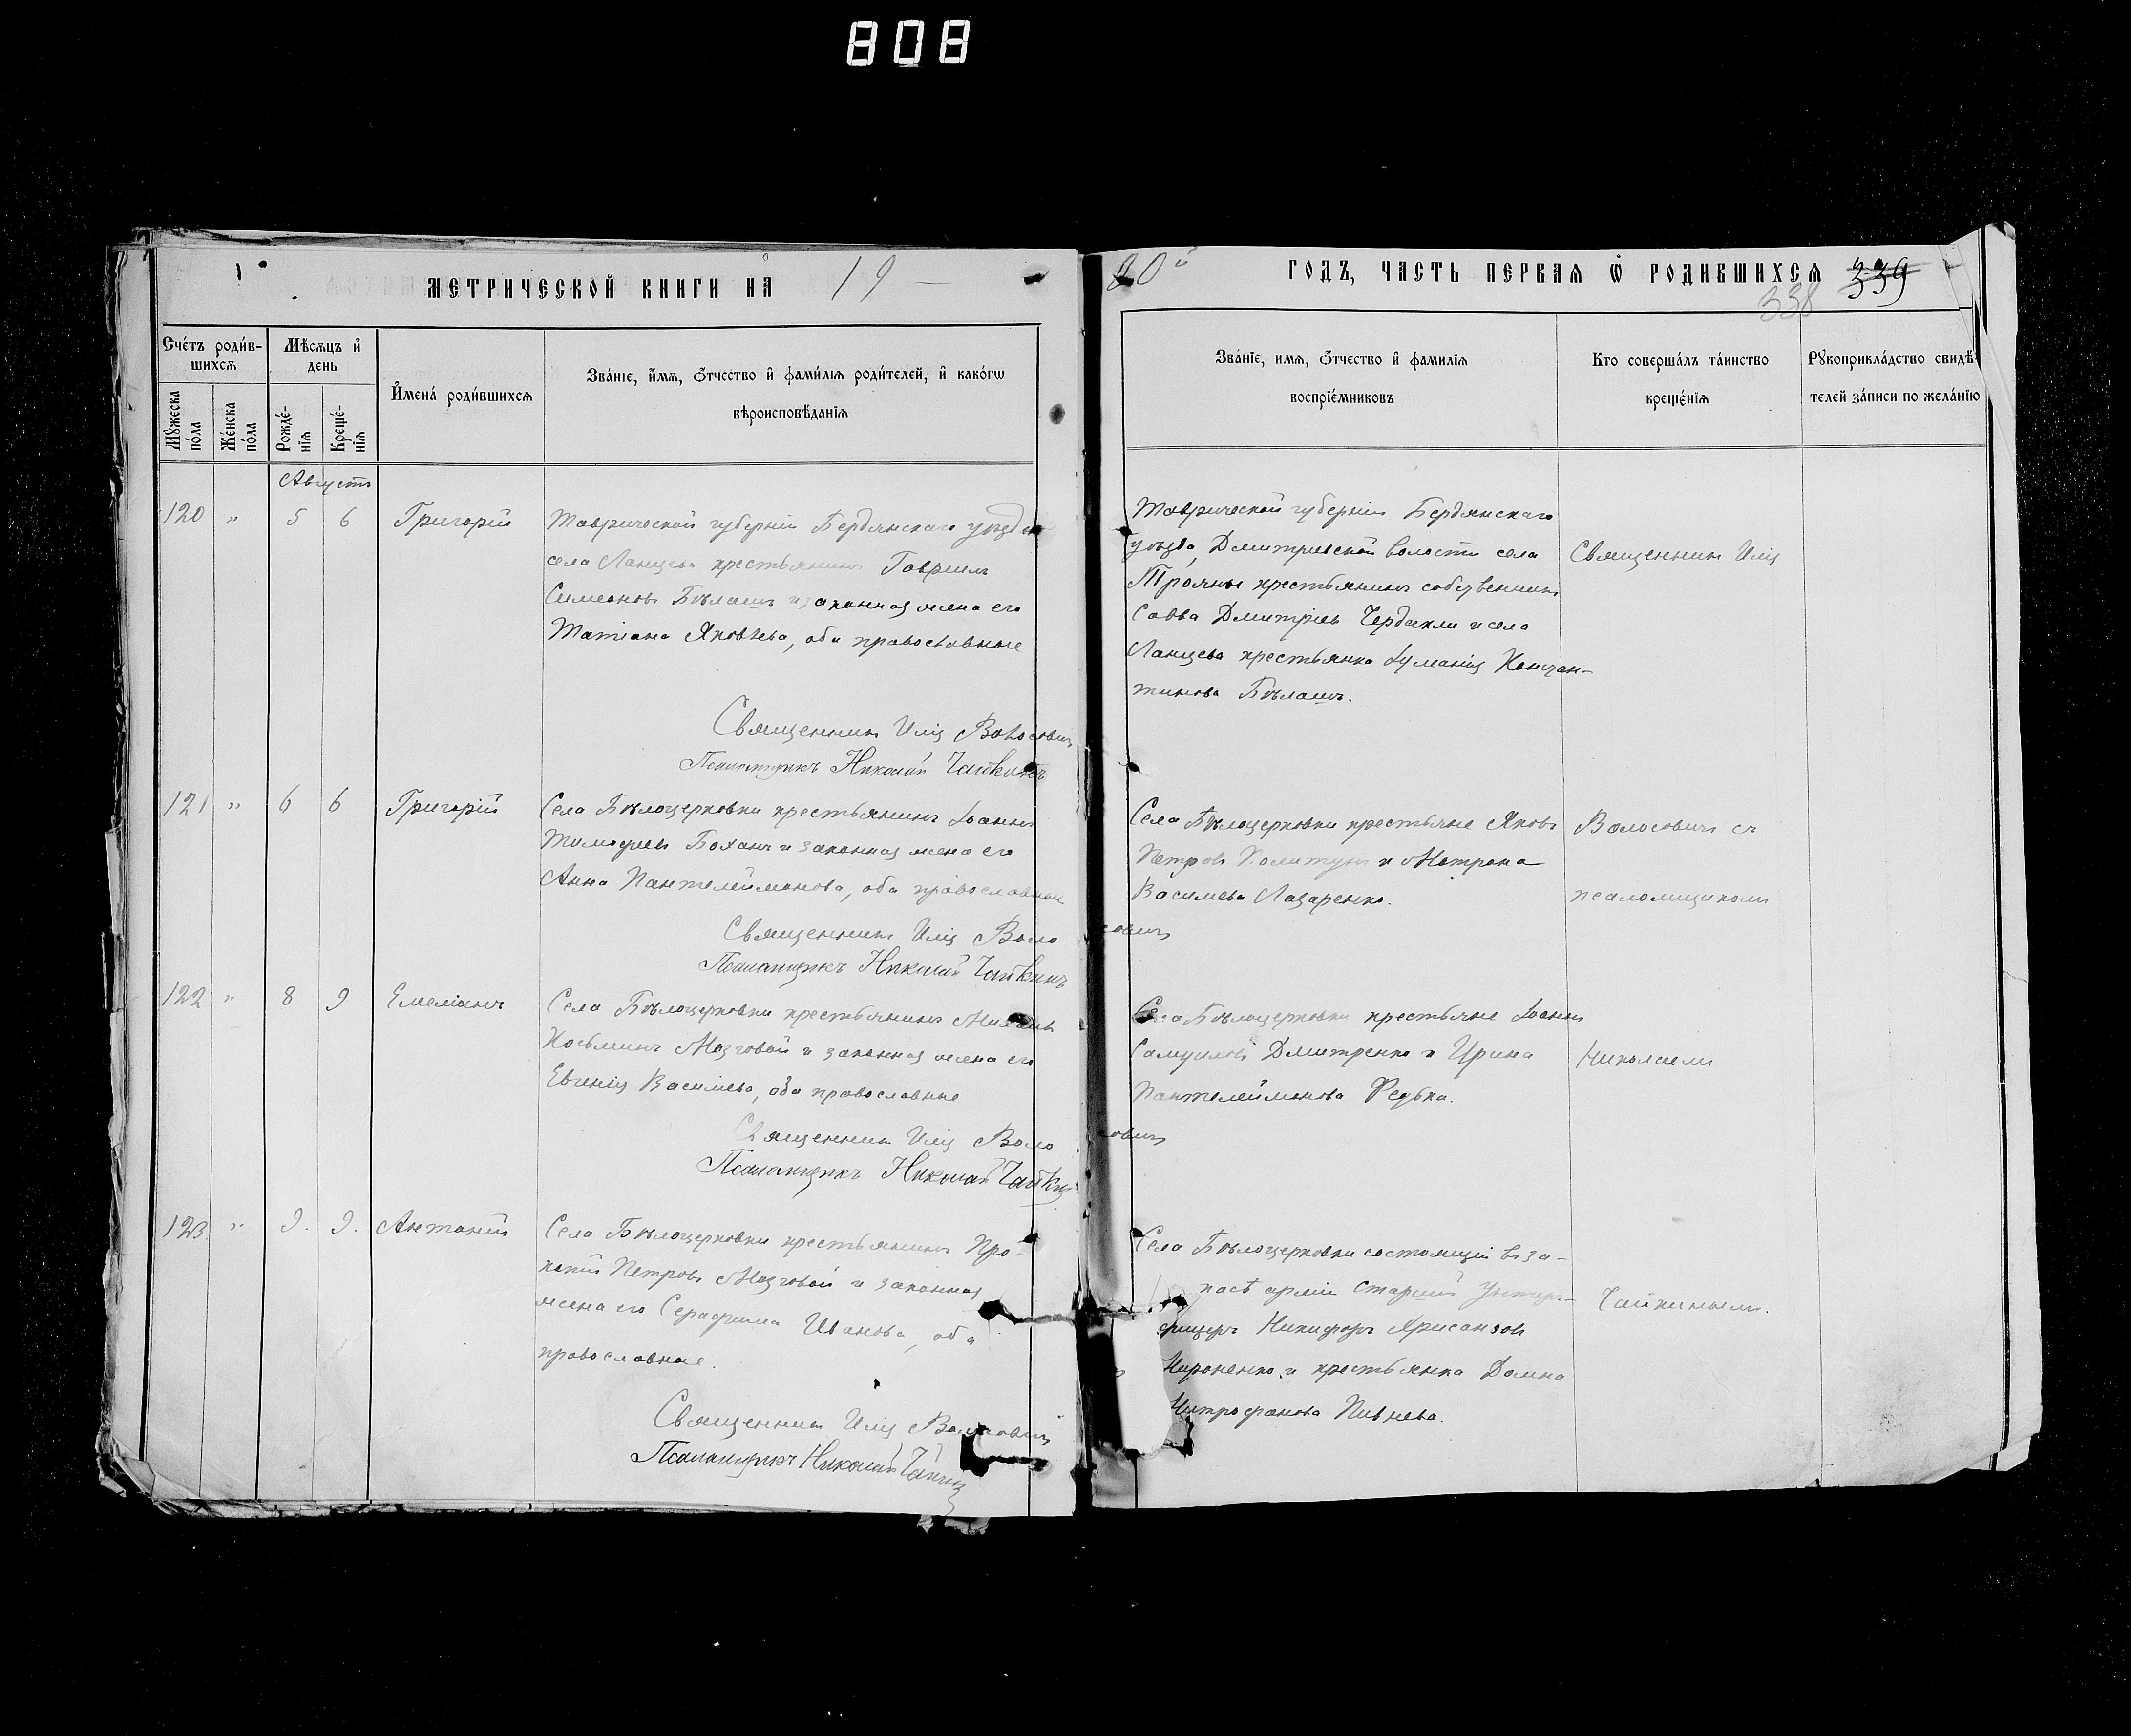 808
МЕТРИЧЕСКОЙ КНИГИ НА 19
00й ГОДЪ, ЧАСТЬ ПЕРВАЯ Ѿ РОДИВШИХСЯ 339
338
Счетъ родив-
шихся
Мужеска
пола
Женска
пола
Мѣсяцъ и
день
Рожде-
нія
Креще-
нія
Имена родившихся
Званіе, имя, отчество и фамилія родителей, и какогѡ
вѣроисповѣданія
Званіе, имя, отчество и фамилія
воспріемниковъ
Кто совершалъ таинство
крещенія
Рукоприкладство свидѣ-
телей записи по желанію
Августъ
120 " 5 6 Григорій
Таврической губерніи Бердянскаго уѣзда
села Ланцева крестьянинъ Гавріилъ
Симеоновъ Бѣлашъ и законная жена его
Татіана Яковлева, оба православные
Священникъ Илія Волосовичъ
Псаломщикъ Николай Чайкинъ
Таврической губерніи Бердянскаго
уѣзда, Дмитріевской волости села
Трояны крестьянинъ собственникъ
Савва Дмитріевъ Чердакли и села
Ланцева крестьянка Іуманія Констан-
тинова Бѣлашъ.
Священникъ Илія
121 " 6 6 Григорій
Села Бѣлоцерковки крестьянинъ Іоаннъ
Тимофеевъ Боханъ и законная жена его
Анна Пантелеймонова, оба православные
Священникъ Илія Волосовичъ
Псаломщикъ Николай Чайкинъ
Села Бѣлоцерковки крестьяне Яковъ
Петровъ и Матрона
Василіева Лазаренко.
Волосовичъ съ
псаломщикомъ
122 " 8 9 Емеліанъ
Села Бѣлоцерковки крестьянинъ
Косьминъ Мозговой и законная жена его
Евгенія Василіева, оба православные
Священникъ Илія Волосовичъ
Псаломщикъ Николай Чайкинъ
Села Бѣлоцерковки крестьяне Іоаннъ
Самуиловъ Дмитренко и Ирина
Пантелеймонова Редька.
Николаемъ
123 " 9. 9. Антоній
Села Бѣлоцерковки крестьянинъ Про-
копій Петровъ Мозговой и законная
жена его Серафима Иванова, оба
православные.
Священникъ Илія Волосовичъ
Псаломщикъ Николай Чайкинъ
Села Бѣлоцерковки состоящій въ за-
пасѣ арміи старшій унтеръ-
фицеръ Никифоръ
Мироненко и крестьянка Домна
Митрофанова Пивнева.
Чайкинымъ.